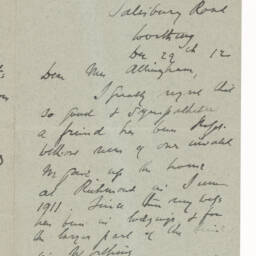 Salisbury Road
Worthing
Dec 29th 12
Dear Mrs Allingham,
I greatly regret that
so good & sympathetic
a friend has been
before news of our
We gave up the house
at Richmond in June
1911. Since then my wife
has been in lodgings & for
the larger part of the time
in Worthing